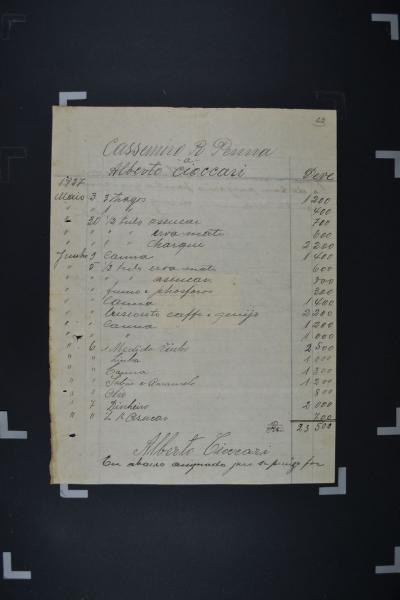 Cassemiro R Penna
a
Alberto Cioccari Deve
1927
Maio 3 3 tragos 1 200
" " " 1 " 400
" 30 1/2 kilo assucar 700
" " " " erva matte 600
" " " " charque 2 200
Junho 3 Canna 1 400
" 5 1/2 kilo erva matte 600
" " " " assucar 700
" " fumo e phosforos 300
" " Canna 1 400
" " café e queijo 2 200
" " Canna 1 200
" " " 1 000
" 6 1 Medida Vinho 2 500
" " Linha 1 000
" " Canna 1 200
" " Sabão e Caramelo 1 200
" " 800
" 7 Dinheiro 2 000
" " Assucar 700
Rs 23 500
Alberto Cioccari
Eu abaixo assignado juro